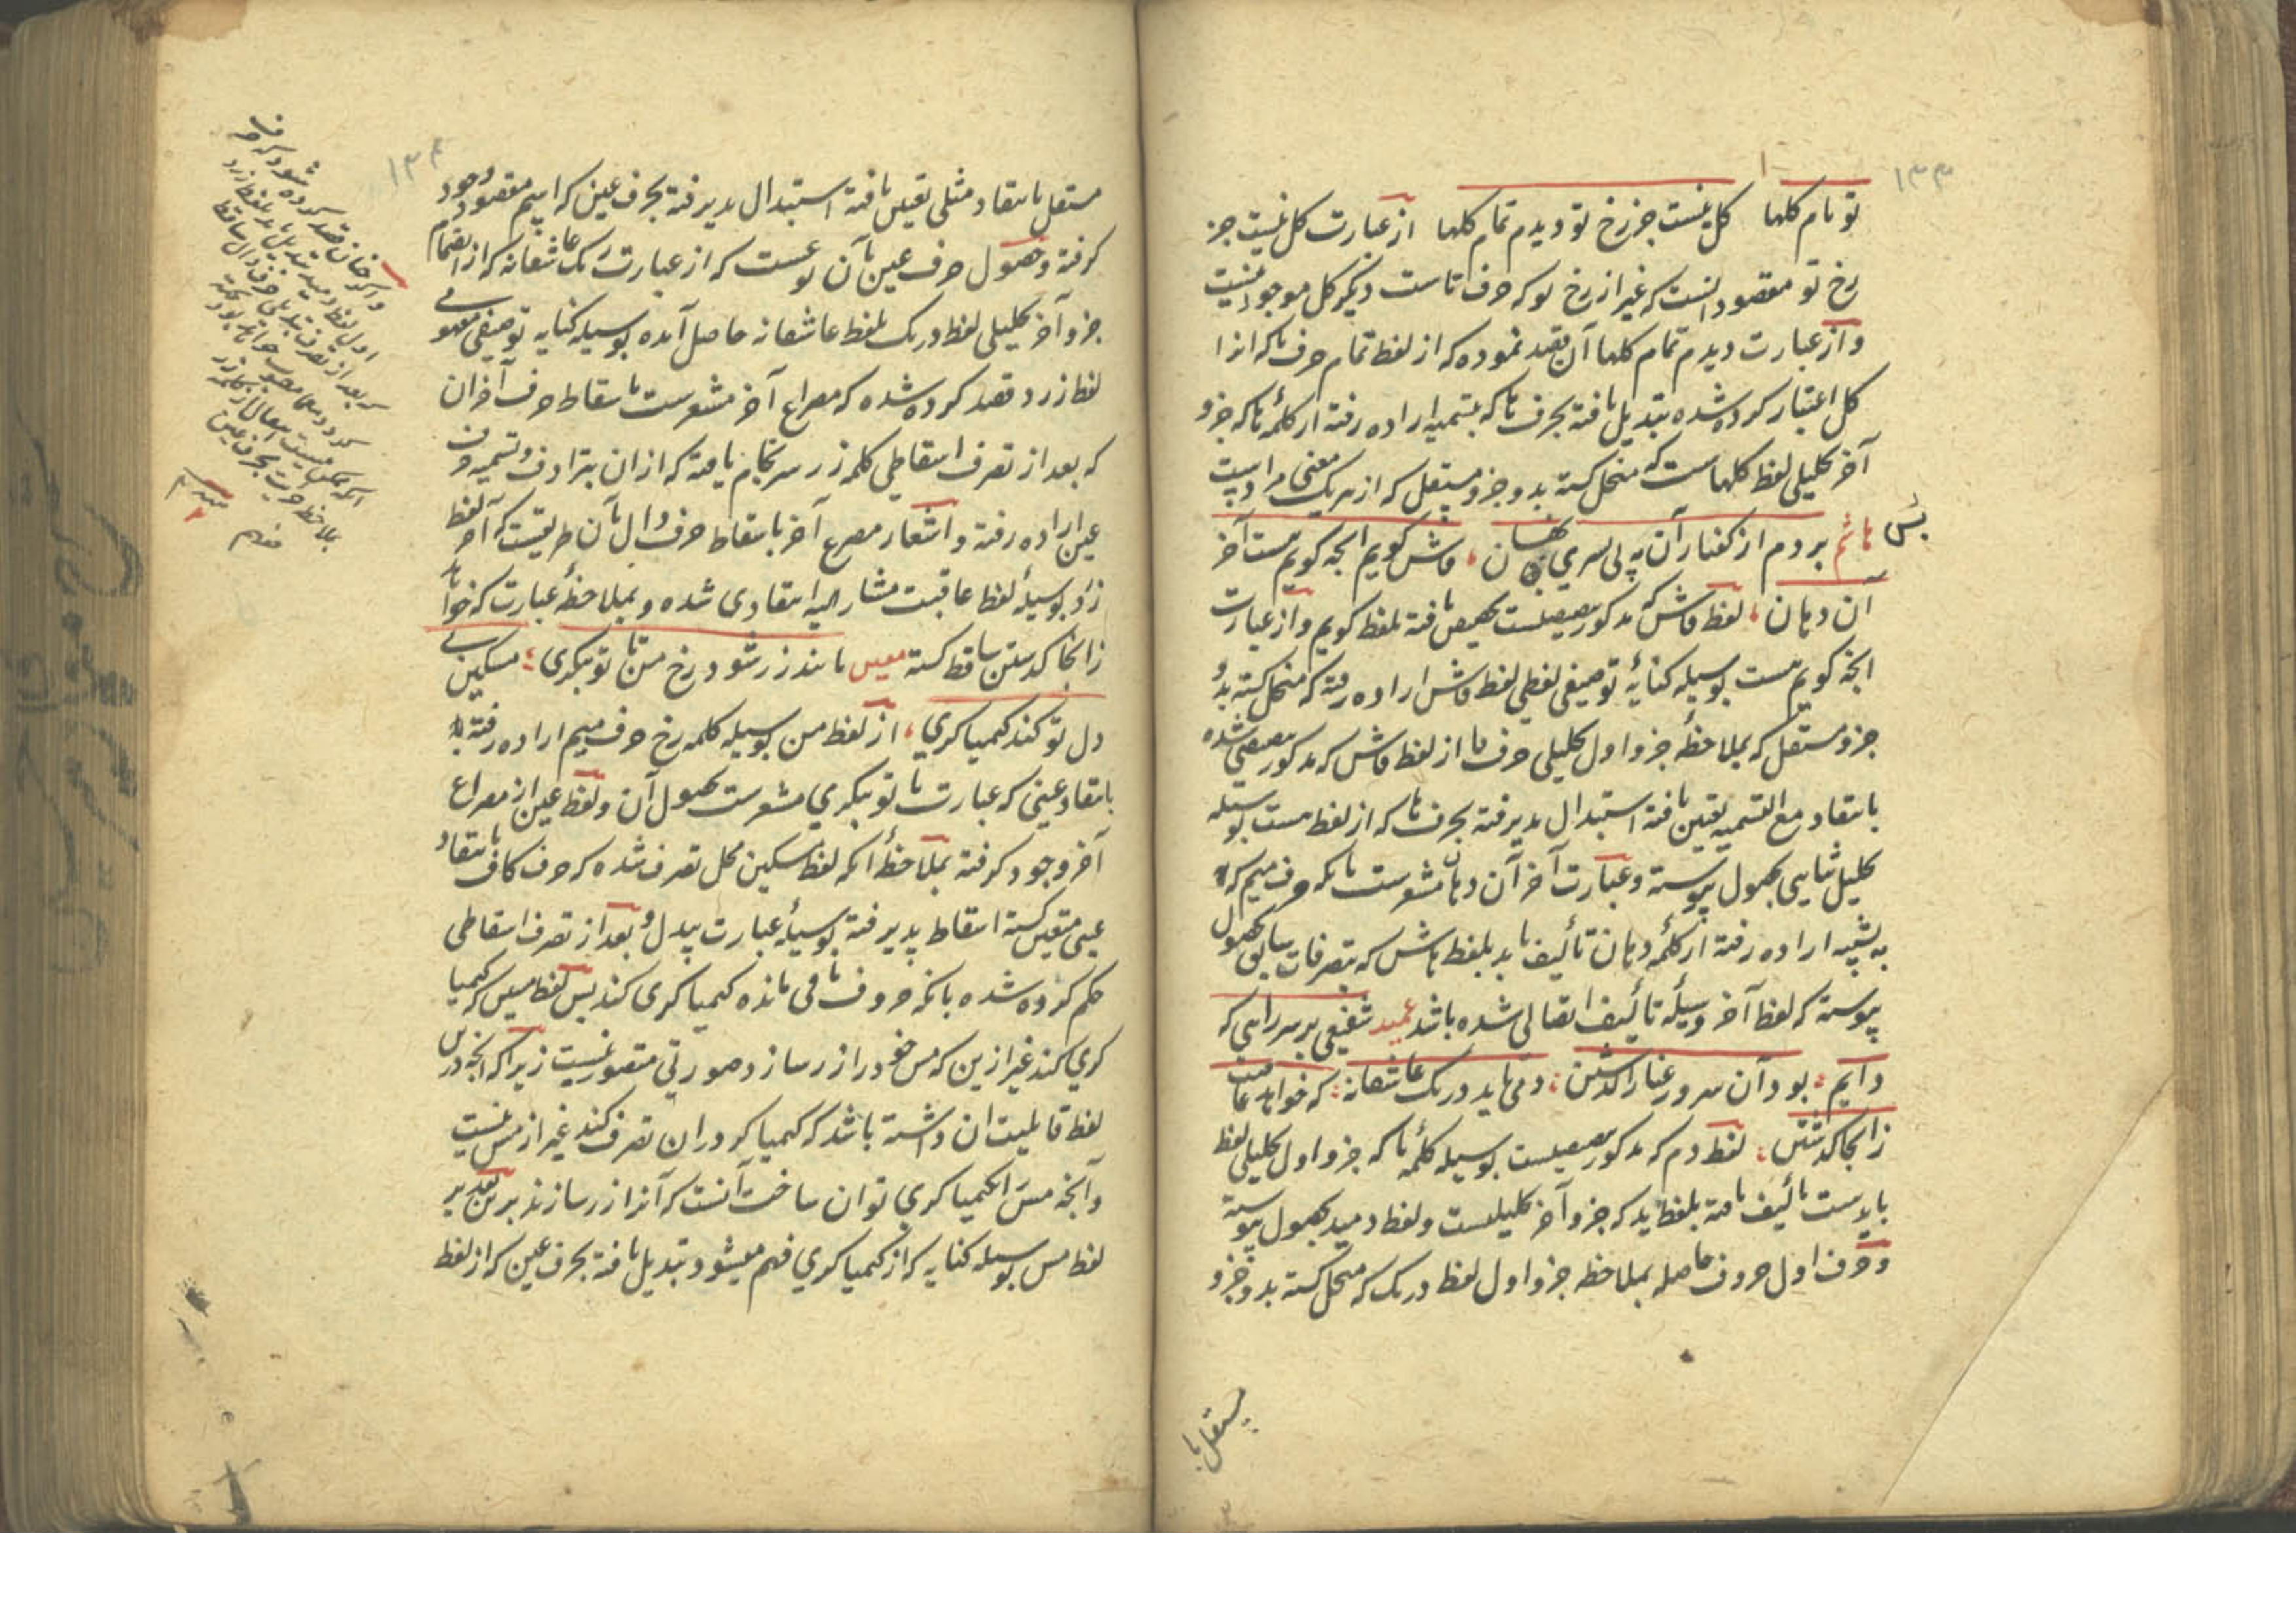 ۱۳۳
تو نام کلها کل نیست جز رخ تو دیدم تمام کلها از عبارت کل نیست جز
رخ تو مقصود انست که غیر از رخ تو که حرف تاست دیکر کل موجود نیست
و از عبارت دیدم تمام کلها آن قصد نموده که از لفظ تمام حرف تا که انرا
کل اعتبار کرده شده تبدیل یافته بحرف تا که بتسمیه اراده رفته از کلمه تا که جزو
آخر تحلیلی لفظ کلهاست که منحل کشته بدو جزو مستقل که از هر یک معنی مراد است
هاشم بر دم از کفتار آن په پی بسری نهان فاش کویم انچه کویم هست آخر
پس
آن دهان لفظ فاش که مذکور تنصیصیست تخصیص یافته بلفظ کویم و از عبارت
انچه کویم هست بوسیله کنایه توصیفی لفظی لفظ فاش اراده رفته که منحل کشته بدو
جزو مستقل که بملاحظه جزو اول تحلیلی حرف فا از لفظ فاش که مذکور تنصیصی شده
بانتقاد مع التسمیه تعین یافته استبدال پذیرفته بحرف ها که از لفظ هست بوسیله
تحلیل ثنایی بحصول پیوسته و عبارت آخر آن دهان مشعرست بانکه حرف میم که
به تشبیه اراده رفته از کلمه دهان تألیف یابد بلفظ هاش که بتصرفات سابق بحصول
پیوسته که لفظ آخر وسیله تألیف اتصالی شده باشد عمید شفیعی بر سر راهی که
دایم بود آن سرو رعنا را کذشتن دمی باید درنک عاشقانه که خواهد عاقبت
زانجا کذشتن لفظ دم که مذکور تنصیصیست بوسیله کلمه با که جزو اول تحلیلی لفظ
بایدست تألیف یافته بلفظ ید که جزو آخر تحلیلیست و لفظ دمید بحصول پیوسته
و حرف اول حروف حاصله بملاحظه جزو اول لفظ درنک که منحل کشته بدو جزو
مستقل با
۱۳۴
مستقل بانتقاد مثلی تعین یافته استبدال پذیرفته بحرف عین که اسم مقصود وجود
کرفته و حصول حرف عین بآن نوعست که از عبارت رنک عاشقانه که از انضمام
جزو آخر تحلیلی لفظ درنک بلفظ عاشقانه حاصل آمده بوسیله کنایه توصیفی معنوی
لفظ زرد قصد کرده شده که مصراع آخر مشعرست باسقاط حرف آخر ان
که بعد از تصرف اسقاطی کلمه زر سرنجام یافته که از ان بترادف و تسمیه حرف
عین اراده رفته و اشعار مصرع آخر باسقاط حرف دال بآن طریقست که آخر لفظ
زرد بوسیله لفظ عاقبت مشار الیه انتقادی شده و بملاحظه عبارت که خواهد
زانجا کذشتن ساقط کشته معین مانند زر شود رخ من تا تو بنکری مسکین
دل تو کند کیمیا کری از لفظ من بوسیله کلمه رخ حرف میم اراده رفته
بانتقاد عینی که عبارت تا تو بنکری مشعرست بحصول آن و لفظ عین از مصراع
آخر وجود کرفته بملاحظه آنکه لفظ مسکین محل تصرف شده که حرف کاف بانتقاد
عینی متعین کشته اسقاط پذیرفته بوسیله عبارت بیدل و بعد از تصرف اسقاطی
حکم کرده شده بانکه حروف باقی مانده کیمیا کری کند پس لفظ مسین که کیمیا
کری کند غیر ازین که مس خود را زر سازد صورتی متصور نیست زیرا که انچه درین
لفظ قابلیت ان داشته باشد که کیمیا کر در ان تصرف کند غیر از مس نیست
و آنچه مس را بکیمیا کری توان ساخت آنست که آنرا زر سازند برین تقدیر
لفظ مس بوسیله کنایه که از کیمیا کری فهم میشود تبدیل یافته بحرف عین که از لفظ
و اکر چنان قصد کرده شود که حرف
اول لفظ دمید تبدیل یابد بلفظ زرد
که بعد از تصرف تبدیلی حرف دال ساقط